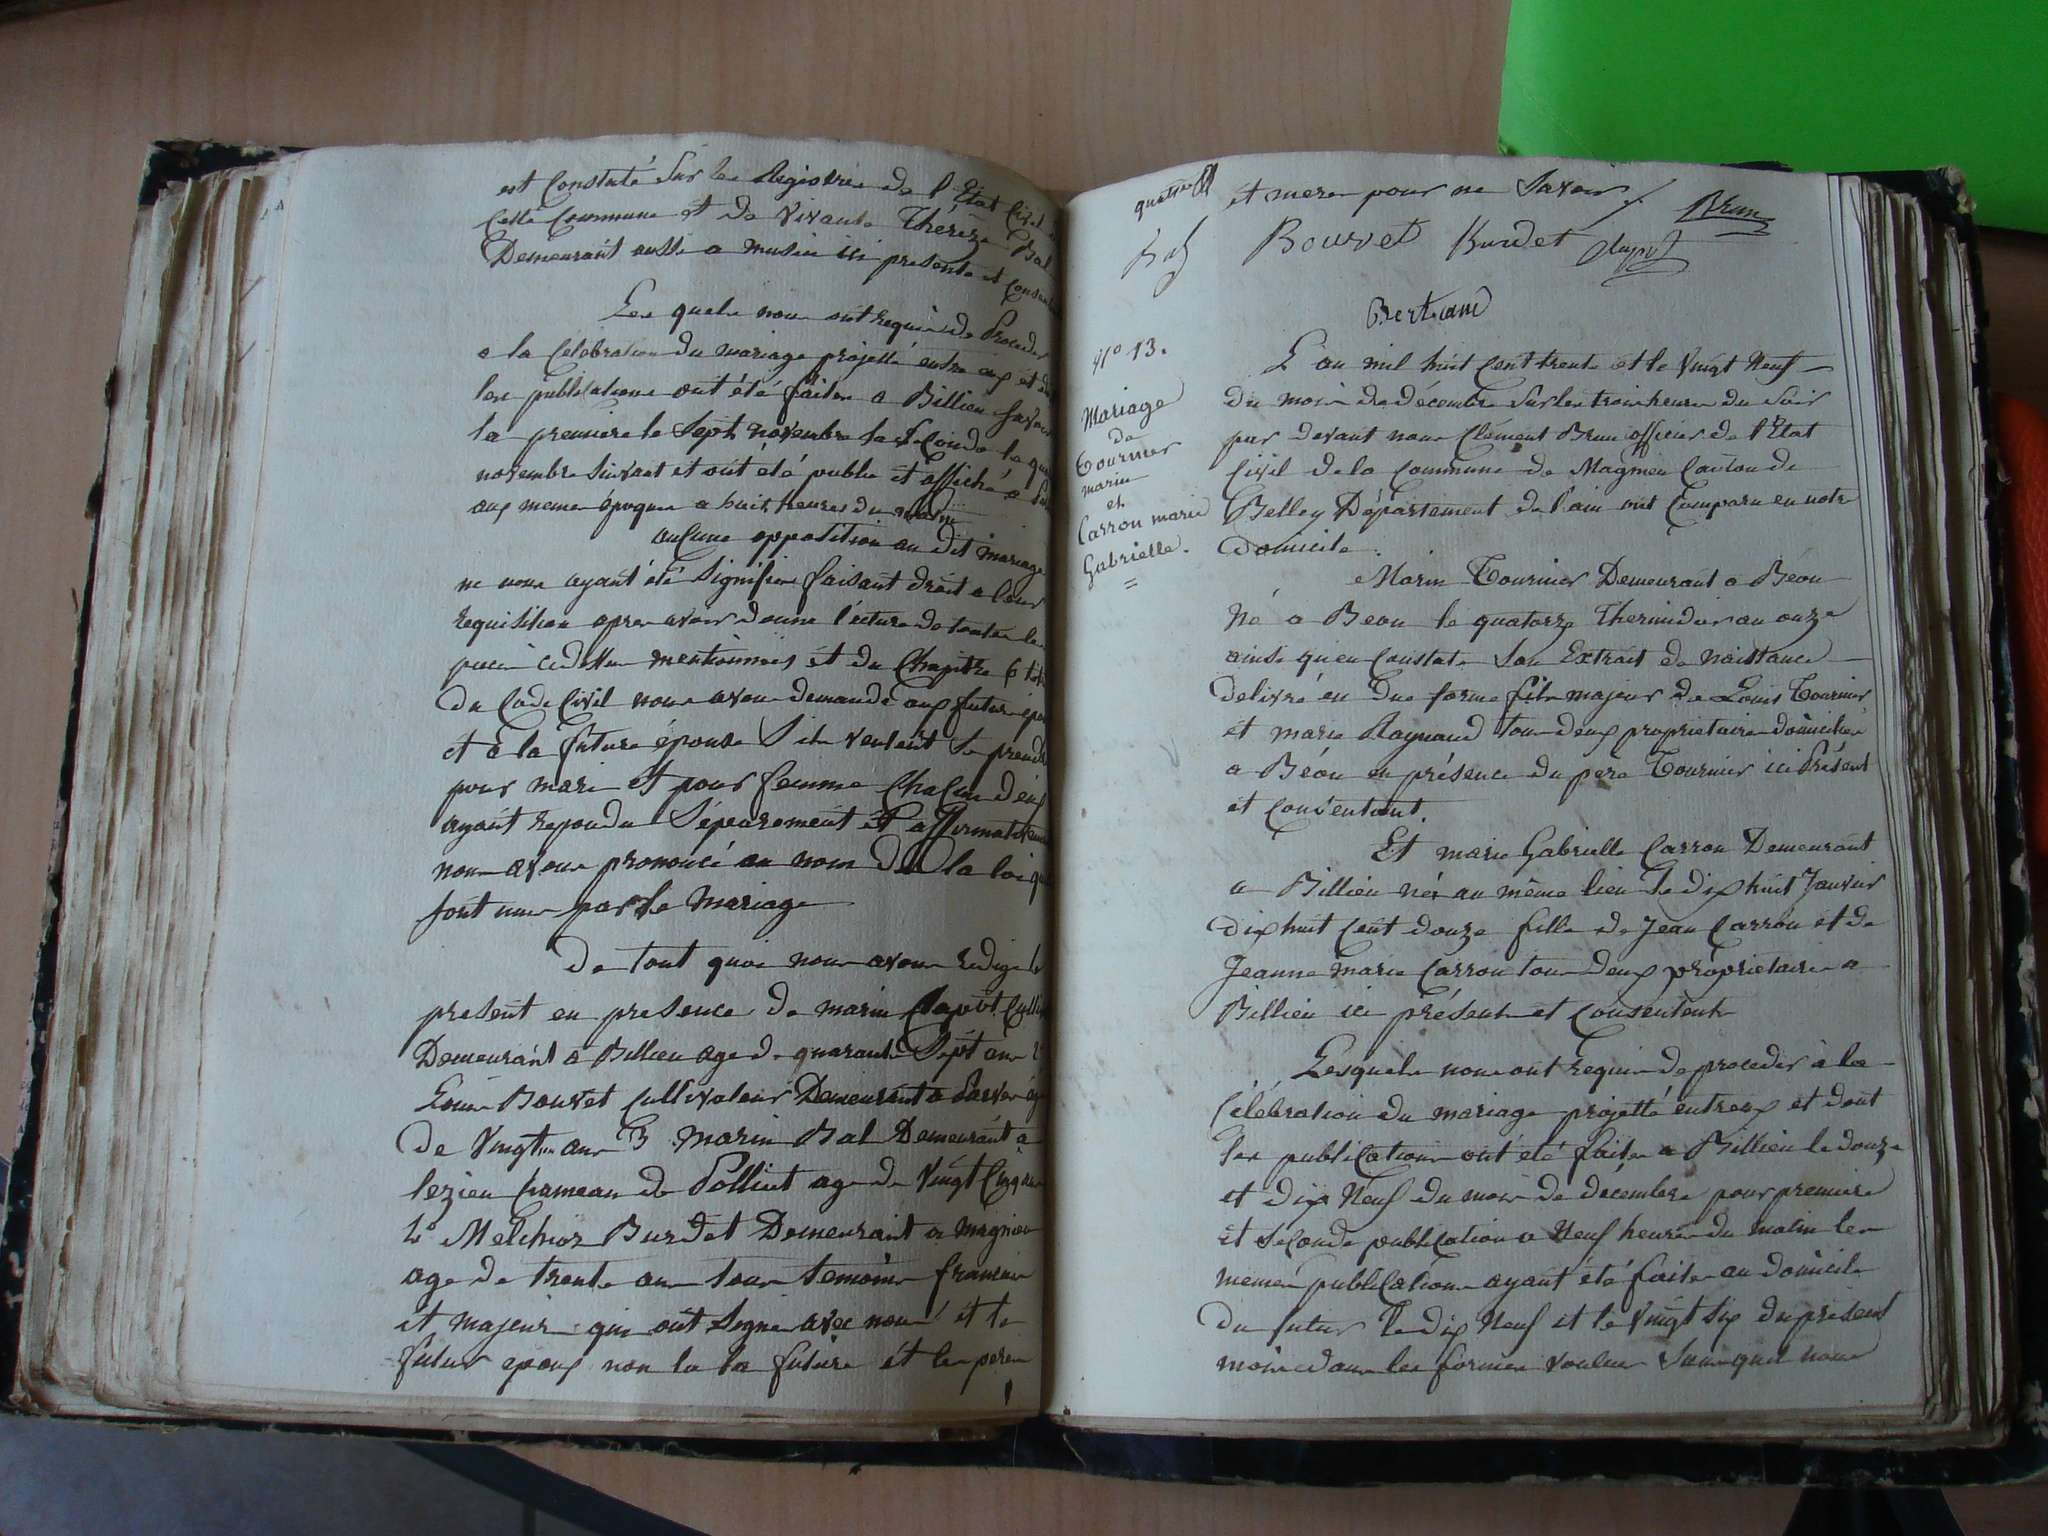 est Constaté Sur les Registres de l'Etat Civil
Cette Commune et de vivante Thérèze Bal
Demeurant aussi a musin ici presente et Consen
Les quels nous ont requis de Proceder
a la Celebration du mariage projetté entre eux et
les publications ont été faites a Billieu Savoir
la premiere le Sept novembre la Seconde le qua
novembre Suivant et ont été publié et affiché a
aux meme époques a huit heures du matin
aucune opposition au dit mariage
ne nous ayant été Signifiée faisant droit a leur
requisition apres avoir donné l'ecture de toutes les
pieces cidessus mentionnées et du Chapitre 6
du Code Civil nous avons demandé aux futur épou
et a la future épouse S'ils veulent Se prendre
pour mari et pour femme Chacun d'eux
ayant repondu Séparement et affirmativement
nous avons prononcé au nom de la loi
sont unis par le Mariage
De tout quoi nous avons redigé le
present en presence de marin Clapot Culti
Demeurant a Billieu age de quarante Sept ans 2°
Louis Bouvet Cultivateur Demeurant a
de Vingt un ans 3° Marin Bal Demeurant a
lezieu hameau de Pollieu age de Vingt Cinq ans
4° Melchior Burdet Demeurant a magnieu
age de trente ans tous temoins francais
et majeurs qui ont Signé avec nous et le
futur epoux non la la future et les peres
et meres pour ne Savoir
Bouvet Burdet Brun
Bal
Bertrand
N° 13.
Mariage
de
Tournier
marin
et
Carron marie
Gabrielle.
L'an mil huit Cent trente et le Vingt Neuf
du mois de décembre Sur les trois heures du Soir
par devant nous Clément Brun officier de l'Etat
Civil de la Commune de Magnieu Canton de
Belley Département de l'ain ont Comparu en notre
domicile.
Marin Tournier Demeurant a Béon
Né a Beon le quatorze Thermidor an onze
ainsi qu'en Constate Son Extrait de Naissance
delivré en due forme fils majeur de Louis Tournier
et marie Raynaud tous deux proprietaires domiciliés
a Béon en présence du pere Tournier ici Présent
et Consentant.
Et marie Gabrielle Carron Demeurant
a Billieu née au même lieu le dix huit Janvier
dix huit Cent douze fille de Jean Carron et de
Jeanne marie Carron tous deux proprietaires a
Billieu ici présents et Consentents
Lesquels nous ont requis de proceder à la
Célébration du mariage projetté entreux et dont
les publications ont été faites a Billieu le douze
et dix Neuf du mois de décembre pour premiere
et Seconde publication a Neuf heures du matin les
memes publications ayant été faites au domicile
du futur le dix Neuf et le Vingt Six du présent
mois dans les formes voulues Sans que nous